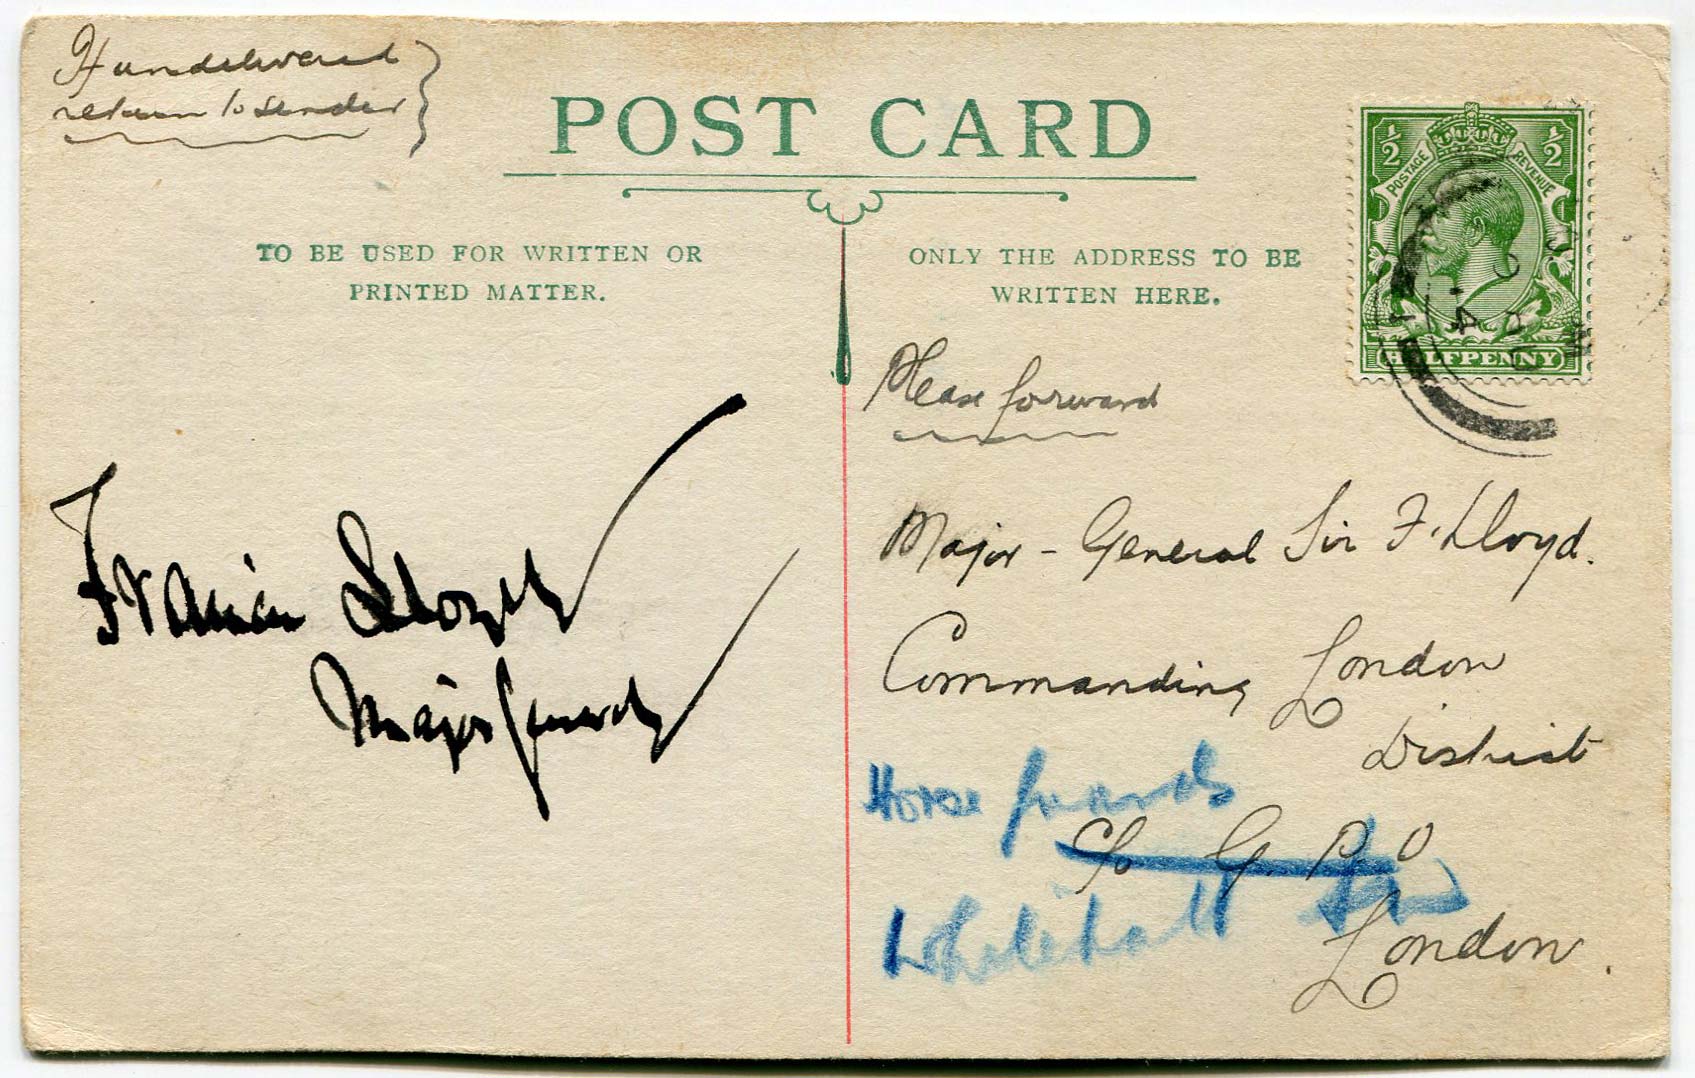 If undelivered
return to sender
POST CARD
TO BE USED FOR WRITTEN OR
PRINTED MATTER.
ONLY THE ADDRESS TO BE
WRITTEN HERE.
1/2 1/2
POSTAGE REVENUE
HALFPENNY
Please forward
Francis Lloyd
Major General
Major-General Sir F. Lloyd.
Commanding London
District
Horse Guards
c/o G. P. O
Whitehall SW
London.